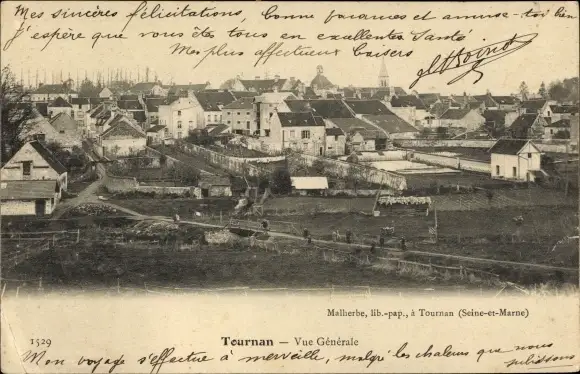 Mes sincères félicitations, bonne vacances et amuse-toi bien
J'espère que vous êtes tous en excellentes santé
Mes plus affectueux baisers
Malherbe, lib.-pap., à Tournan (Seine-et-Marne)
1529
Tournan — Vue Générale
Mon voyage s'effectue à merveille, malgré les chaleurs que nous
subissons.